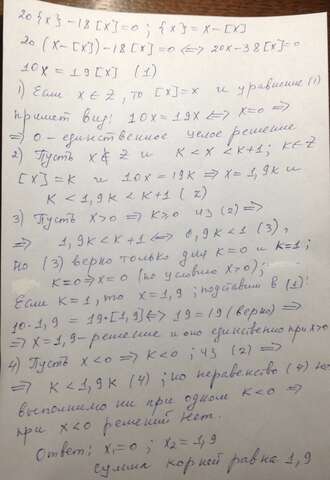 20{x}-18[x]=0; {x}=x-[x]
20(x-[x])-18[x]=0 <=> 20x-38[x]=0
10x=19[x] (1)
1) Если x∈Z, то [x]=x и уравнение (1)
примет вид: 10x=19x <=> x=0 =>
=> 0 - единственное целое решение
2) Пусть x∉Z и K<x<K+1; K∈Z
[x]=K и 10x=19K => x=1,9K и
K<1,9K<K+1 (2)
3) Пусть x>0 => K≥0 из (2) =>
=> 1,9K<K+1 <=> 0,9K<1 (3),
но (3) верно только для K=0 и K=1;
K=0 => x=0 (по условию x>0);
Если K=1, то x=1,9; подставим в (1):
10·1,9=19·[1,9] <=> 19=19 (верно) =>
=> x=1,9 - решение и оно единственно при x>0
4) Пусть x<0 => K<0; из (2) =>
=> K<1,9K (4); но неравенство (4) не
выполнимо ни при одном K<0 =>
при x<0 решений нет.
Ответ: x₁=0; x₂=1,9
сумма корней равна 1,9